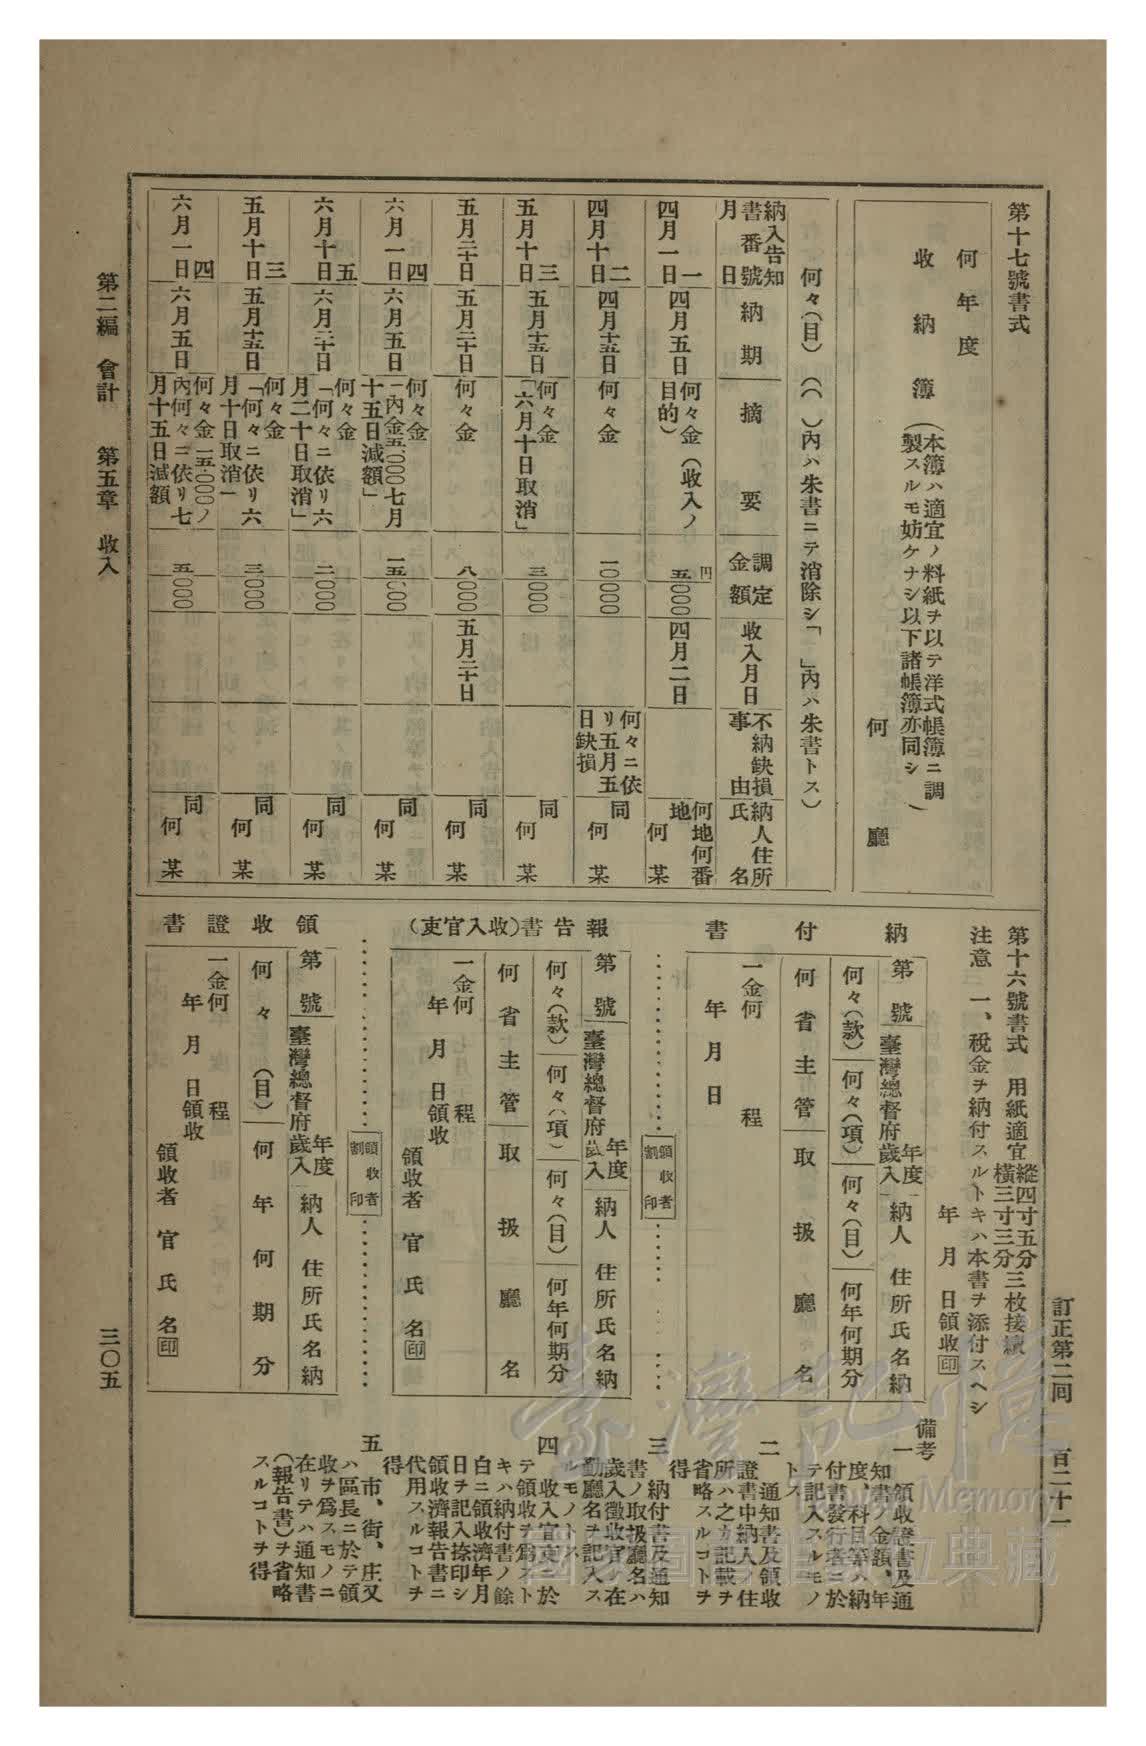 訂正第二回　百二十一
第十七號書式
何年度
收納簿（本簿ハ適宜ノ料紙ヲ以テ洋式帳簿ニ調
製スルモ妨ケナシ以下諸帳簿亦同シ）
何廳
何々（目）（（　）內ハ朱書ニテ消除シ「　」內ハ朱書トス）
納入告知書番號　月日
納期
摘要
調定金額
收入月日
不納缺損事由
納人住所氏名
一　四月一日
四月五日
何々金（收入ノ
目的）
円
五〇〇〇
四月二日
何地何番地
何某
二　四月十日
四月十五日
何々金
一〇〇〇〇
何々ニ依
リ五月五
日缺損
同
何某
三　五月十日
五月十五日
何々金
「六月十日取消」
三〇〇〇
同
何某
五月二十日
五月二十日
何々金
八〇〇〇
五月二十日
同
何某
四　六月一日
六月五日
何々金
「內金五、〇〇〇七月
十五日減額」
同
何某
五　六月十日
六月二十日
何々金
「何々ニ依リ六
月二十日取消」
二〇〇〇
同
何某
三　五月十日
五月十五日
何々金
「何々ニ依リ六
月十日取消」
三〇〇〇
同
何某
四　六月一日
六月五日
何々金一五、〇〇〇ノ
內何々ニ依リ七
月十五日減額
五〇〇〇
同
何某
第十六號書式　用紙適宜　縱四寸五分　橫三寸三分　三枚接續
注意　一、稅金ヲ納付スルトキハ本書ヲ添付スヘシ
年月日領收印
納付書
第　號　臺灣總督府　年度歲入　納人　住所氏名納
何々（款）　何々（項）　何々（目）　何年何期分
何省主管　取扱廳名
一金何　程
年月日
領收者割印
報告書（收入官吏）
第　號　臺灣總督府　年度歲入　納人　住所氏名納
何々（款）　何々（項）　何々（目）　何年何期分
何省主管　取扱廳名
一金何　程
年月日領收
領收者　官氏名印
領收者割印
領收證書
第　號　臺灣總督府　年度歲入　納人　住所氏名納
何々（目）　何年何期分
一金何　程
年月日領收
領收者　官氏名印
備考
一　領收證書及通
知書ノ金額、年
度、科目等ハ納
付書發行者ニ於
テ記入スルモノ
トス
二　通知書及領收
證書中納人ノ住
所ハ之カ記載ヲ
省略スルコトヲ
得
三　納付書及通知
書ノ取扱廳名ハ
歲入徵收官ノ在
勤廳名ヲ記入ス
ルモノトス
四　收入官吏ニ於
テ領收ヲ爲スト
キハ納付書ノ餘
白ニ領收濟年月
日ヲ記入捺印シ
領收濟報告書ニ
代用スルコトヲ
得
五　市、街、庄又
ハ區長ニ於テ領
收ヲ爲スモノニ
在リテハ通知書
（報告書）ヲ省略
スルコトヲ得
第二編　會計　第五章　收入
三〇五
臺灣記憶
Taiwan Memory
國家圖書館數位典藏